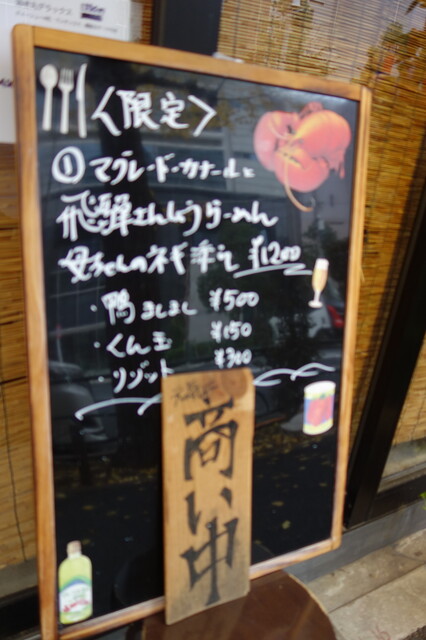 〈限定〉
① マグレ・ド・カナールと
飛騨さんしょうらーめん
母ちゃんのネギ添え ¥1200
・鴨ましまし ¥500
・くん玉 ¥150
・リゾット ¥300
商い中